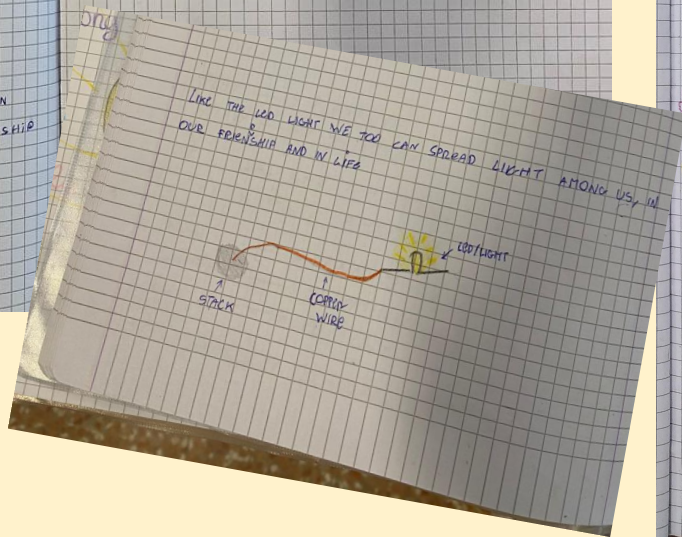 N
SHIP
ony
LIKE THE LED LIGHT WE TOO CAN SPREAD LIGHT AMONG US, IN
OUR FRIENSHIP AND IN LIFE
D
LED/LIGHT
STACK
COPPER
WIRE